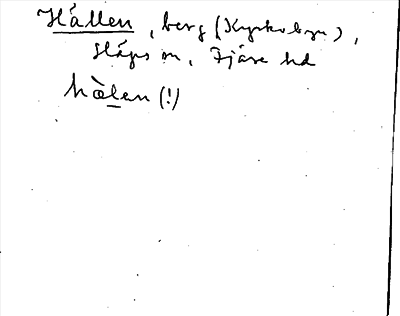 Hållen, berg (Kyrkobyn),
Släps sn, Fjäre hd
hàlen (!)